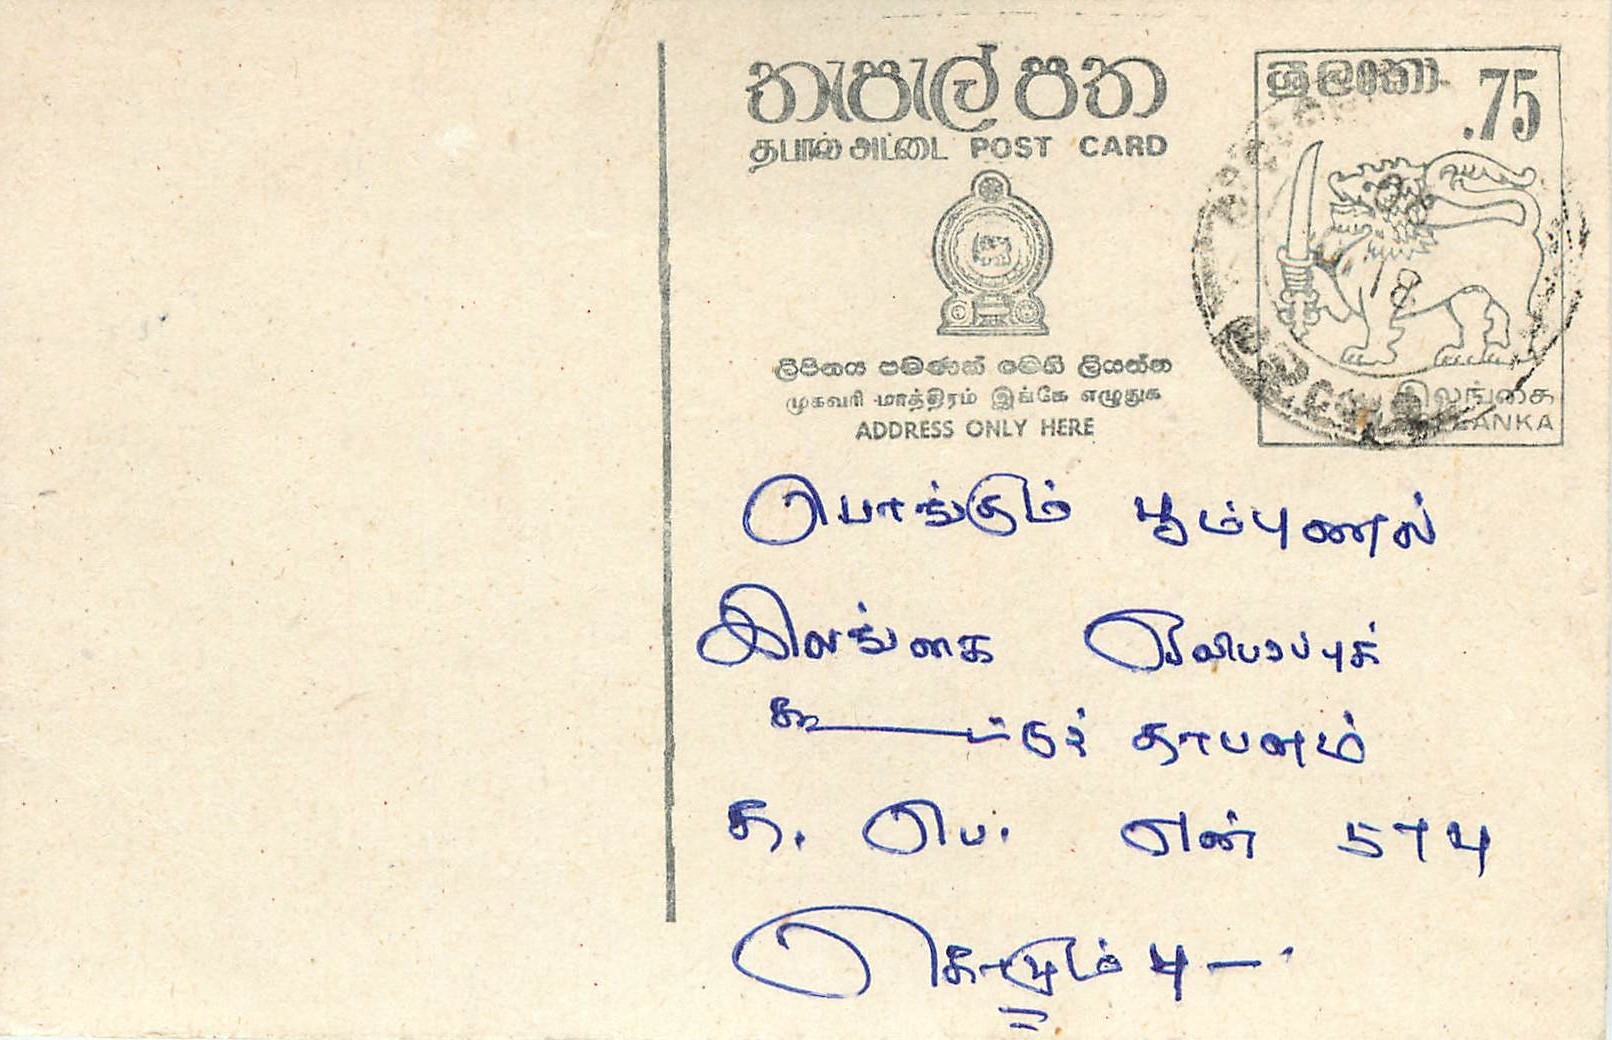 තැපැල් පත
ශ්‍රී ලංකා .75
தபால் அட்டை POST CARD
ලිපිනය පමණක් මෙහි ලියන්න
முகவரி மாத்திரம் இங்கே எழுதுக
ADDRESS ONLY HERE
இலங்கை
LANKA
பொங்கும் பூம்புனல்
இலங்கை ஒலிபரப்புக்
கூட்டுத் தாபனம்
த. பெ. எண் 574
கொழும்பு -